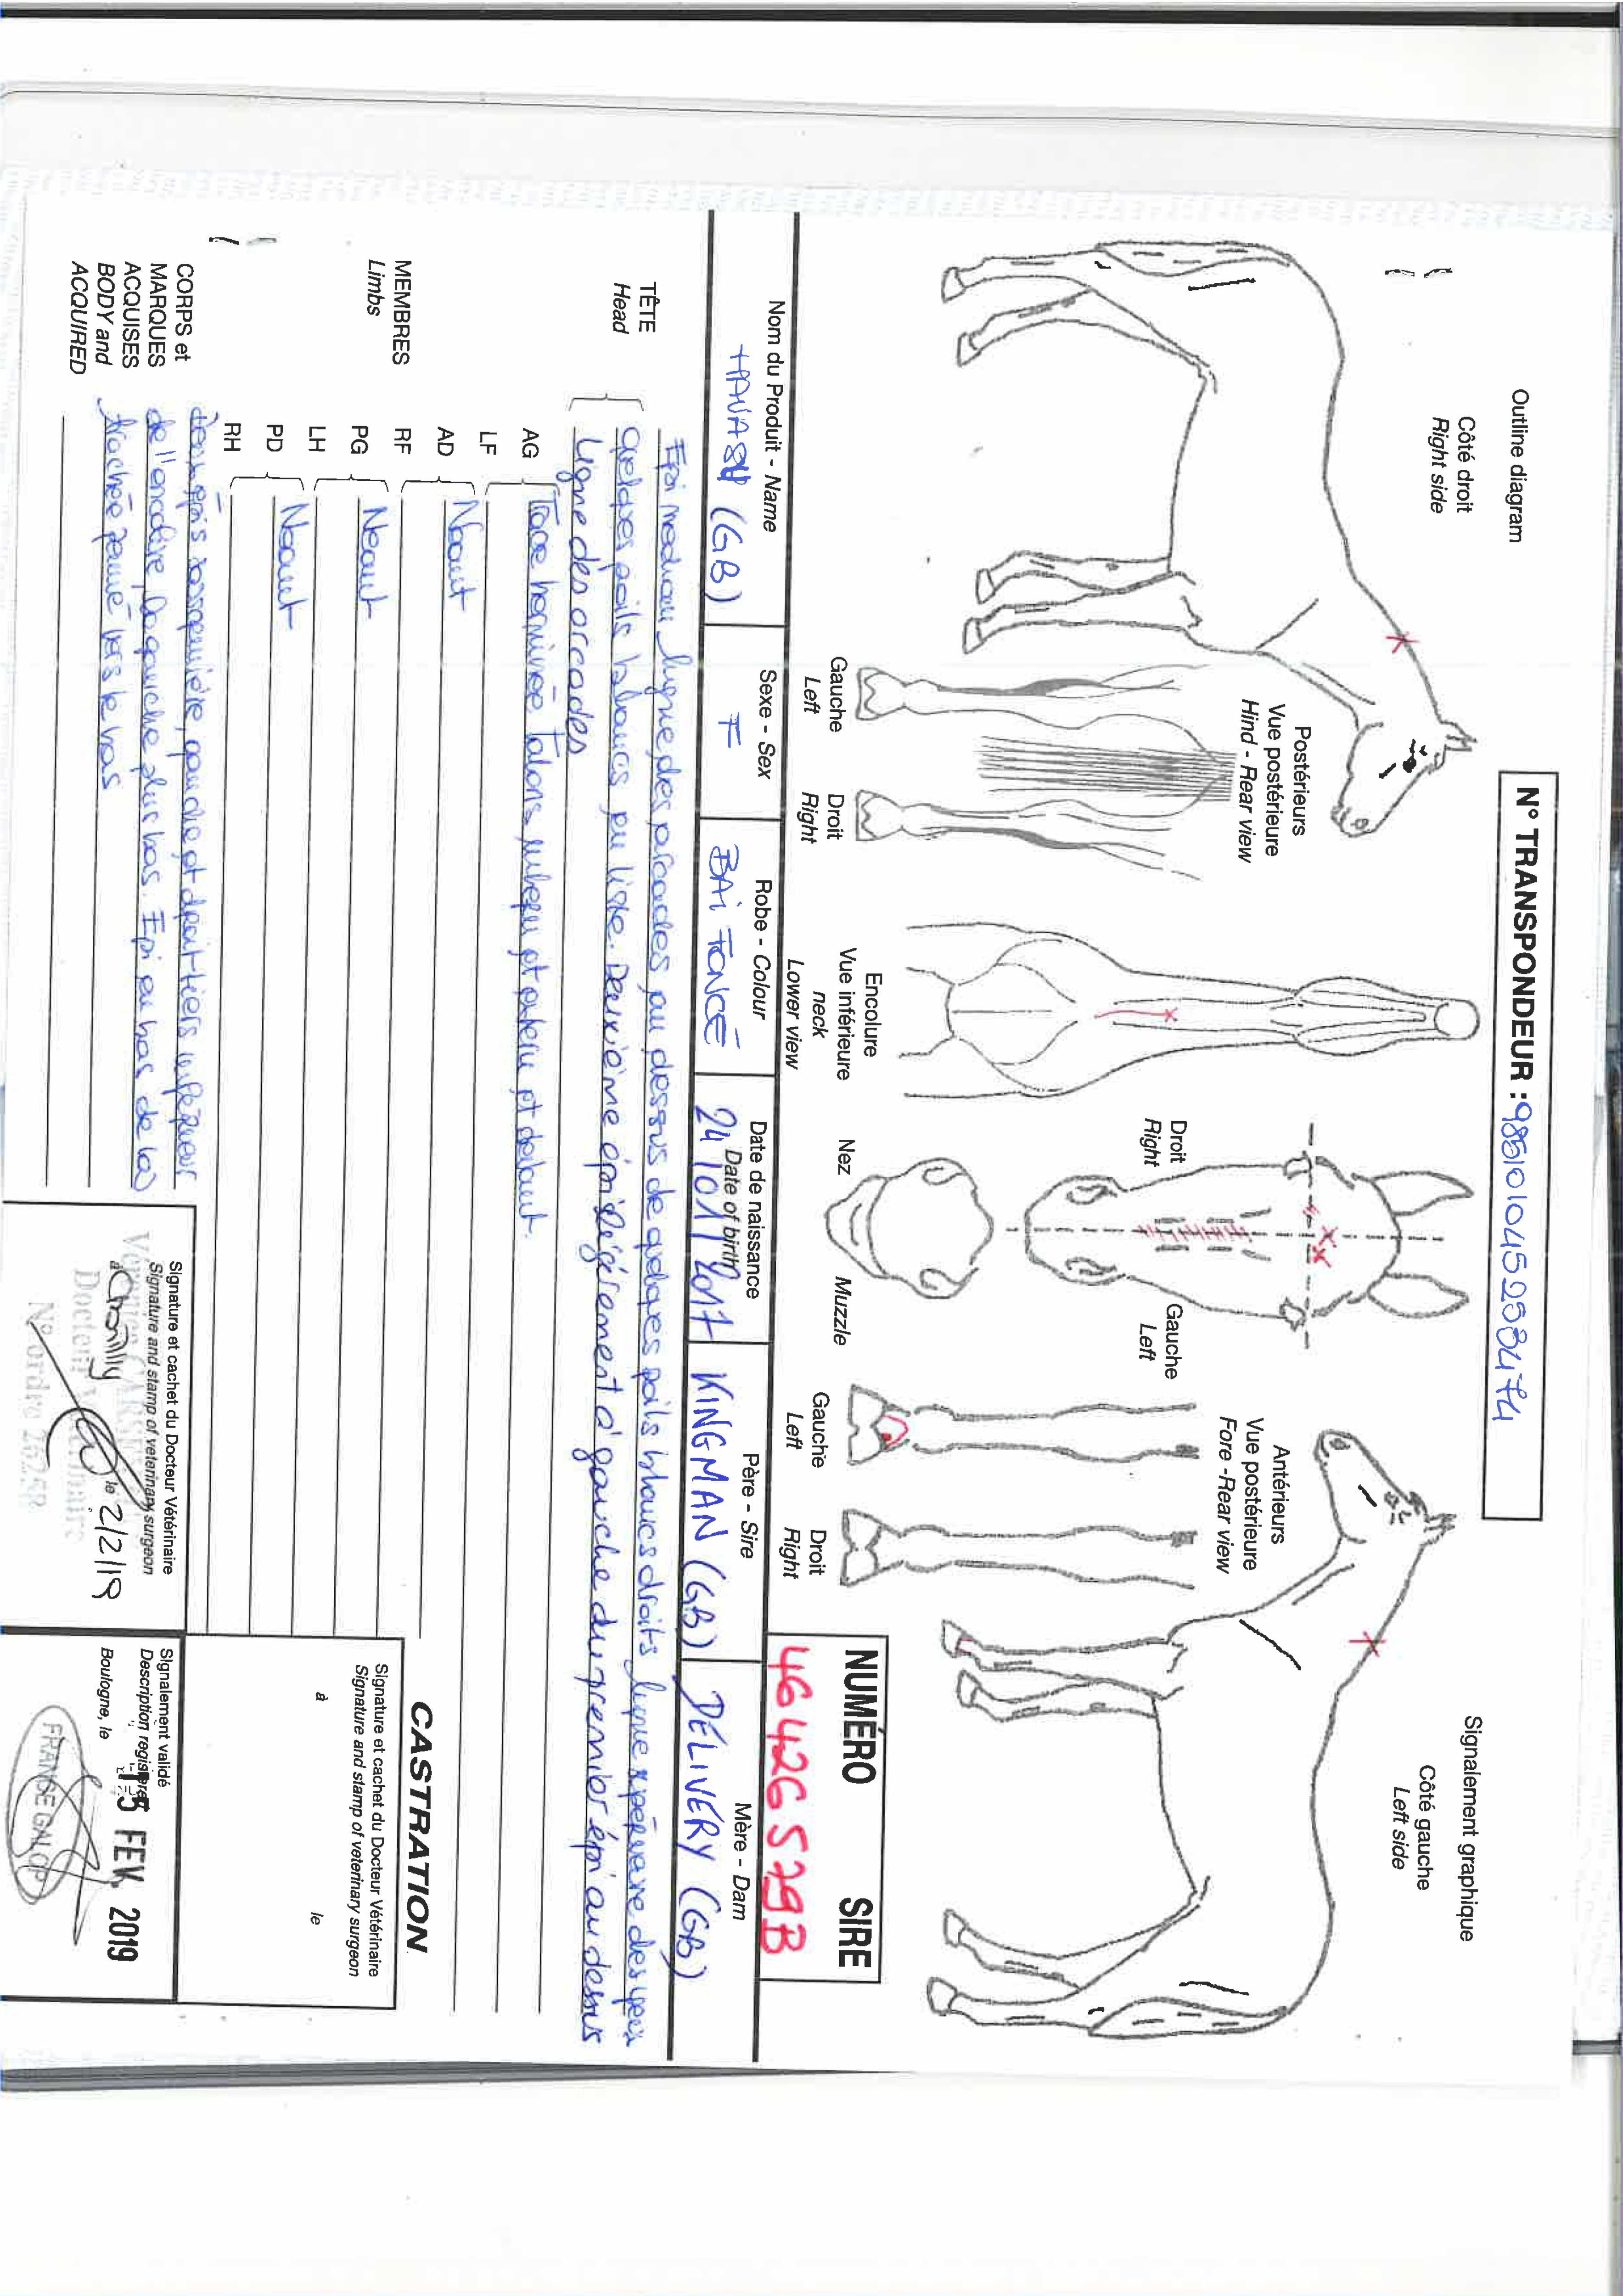 Outline diagram
Côté droit
Right side
N° TRANSPONDEUR :
Signalement graphique
Côté gauche
Left side
Postérieurs
Vue postérieure
Hind - Rear view
Gauche
Left
Droit
Right
Encolure
Vue inférieure
neck
Lower view
Droit
Right
Gauche
Left
Nez
Muzzle
Antérieurs
Vue postérieure
Fore -Rear view
Gauche
Left
Droit
Right
NUMÉRO SIRE
46 426 579B
Nom du Produit - Name
(GB)
Sexe - Sex
F
Robe - Colour
BAI FONCÉ
Date de naissance
Date of birth
24/01/2017
Père - Sire
KINGMAN (GB)
Mère - Dam
DELIVERY (GB)
TÊTE
Head
Epi médian ligne des arcades au dessus de quelques poils blancs droits ligne supérieure des yeux
quelques poils blancs en liste. Deuxième épi légèrement à gauche du premier épi au dessus
ligne des arcades
MEMBRES
Limbs
AG
LF
Trace herminée talons interne et externe et
AD
RF
Néant
PG
LH
Néant
PD
RH
Néant
CORPS et
MARQUES
ACQUISES
BODY and
ACQUIRED
gauche et droit tiers inférieur
de l'encolure, la gauche plus bas. Epi en bas de la
trachée penné vers le bas
CASTRATION
Signature et cachet du Docteur Vétérinaire
Signature and stamp of veterinary surgeon
à le
Signature et cachet du Docteur Vétérinaire
Signature and stamp of veterinary surgeon
à Chantilly le 2/2/19
N° ordre
Signalement validé
Description registered
Boulogne, le
15 FEV. 2019
FRANCE GALOP